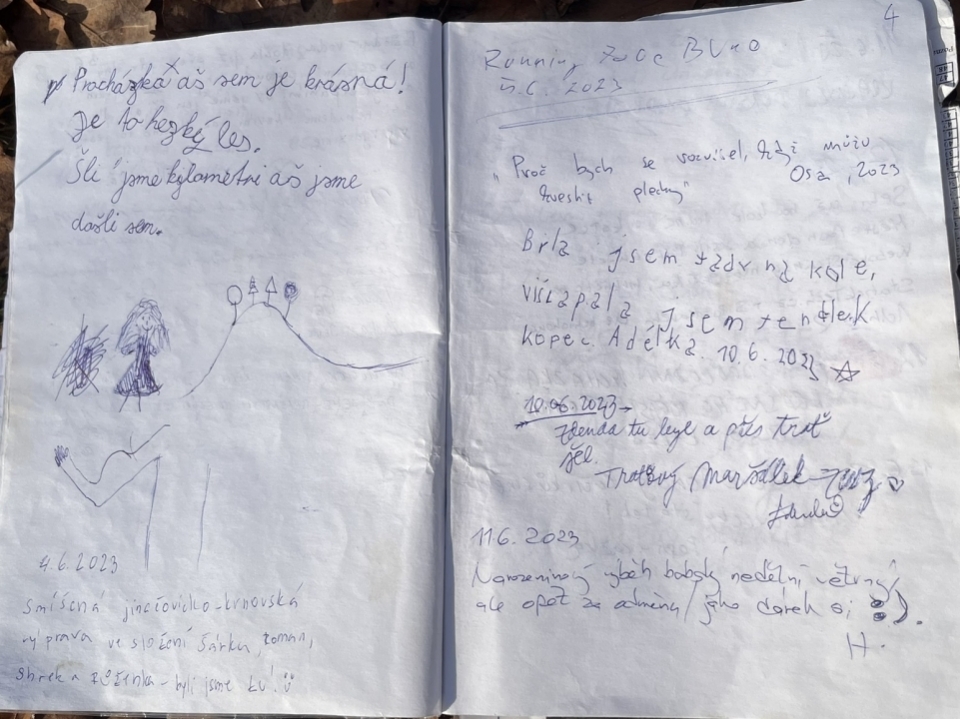 Procházka aš sem je krásná!
Je to hezký les.
Šli jsme kylometri aš jsme
došli sem.
4.6.2023
Smíšená jinačovicko-krnovská
výprava ve složení Šárka, Roman,
Shrek a Růženka - byli jsme tu!
4
Running Brno
5.6. 2023
"Proč bych se vozrušel, když můžu
Osa, 2023
kveslit plechy"
Byla jsem tady na kole,
višlapala jsem tendlek
kopec Adélka. 10.6.2023
10.06.2023
Zdenda tu byl a přes trať
šel.
Traťový Maršálek
11.6. 2023
Narozeninový výběh babský nedělní větrný
ale opět za odměnu/jako dárek si :).
H.